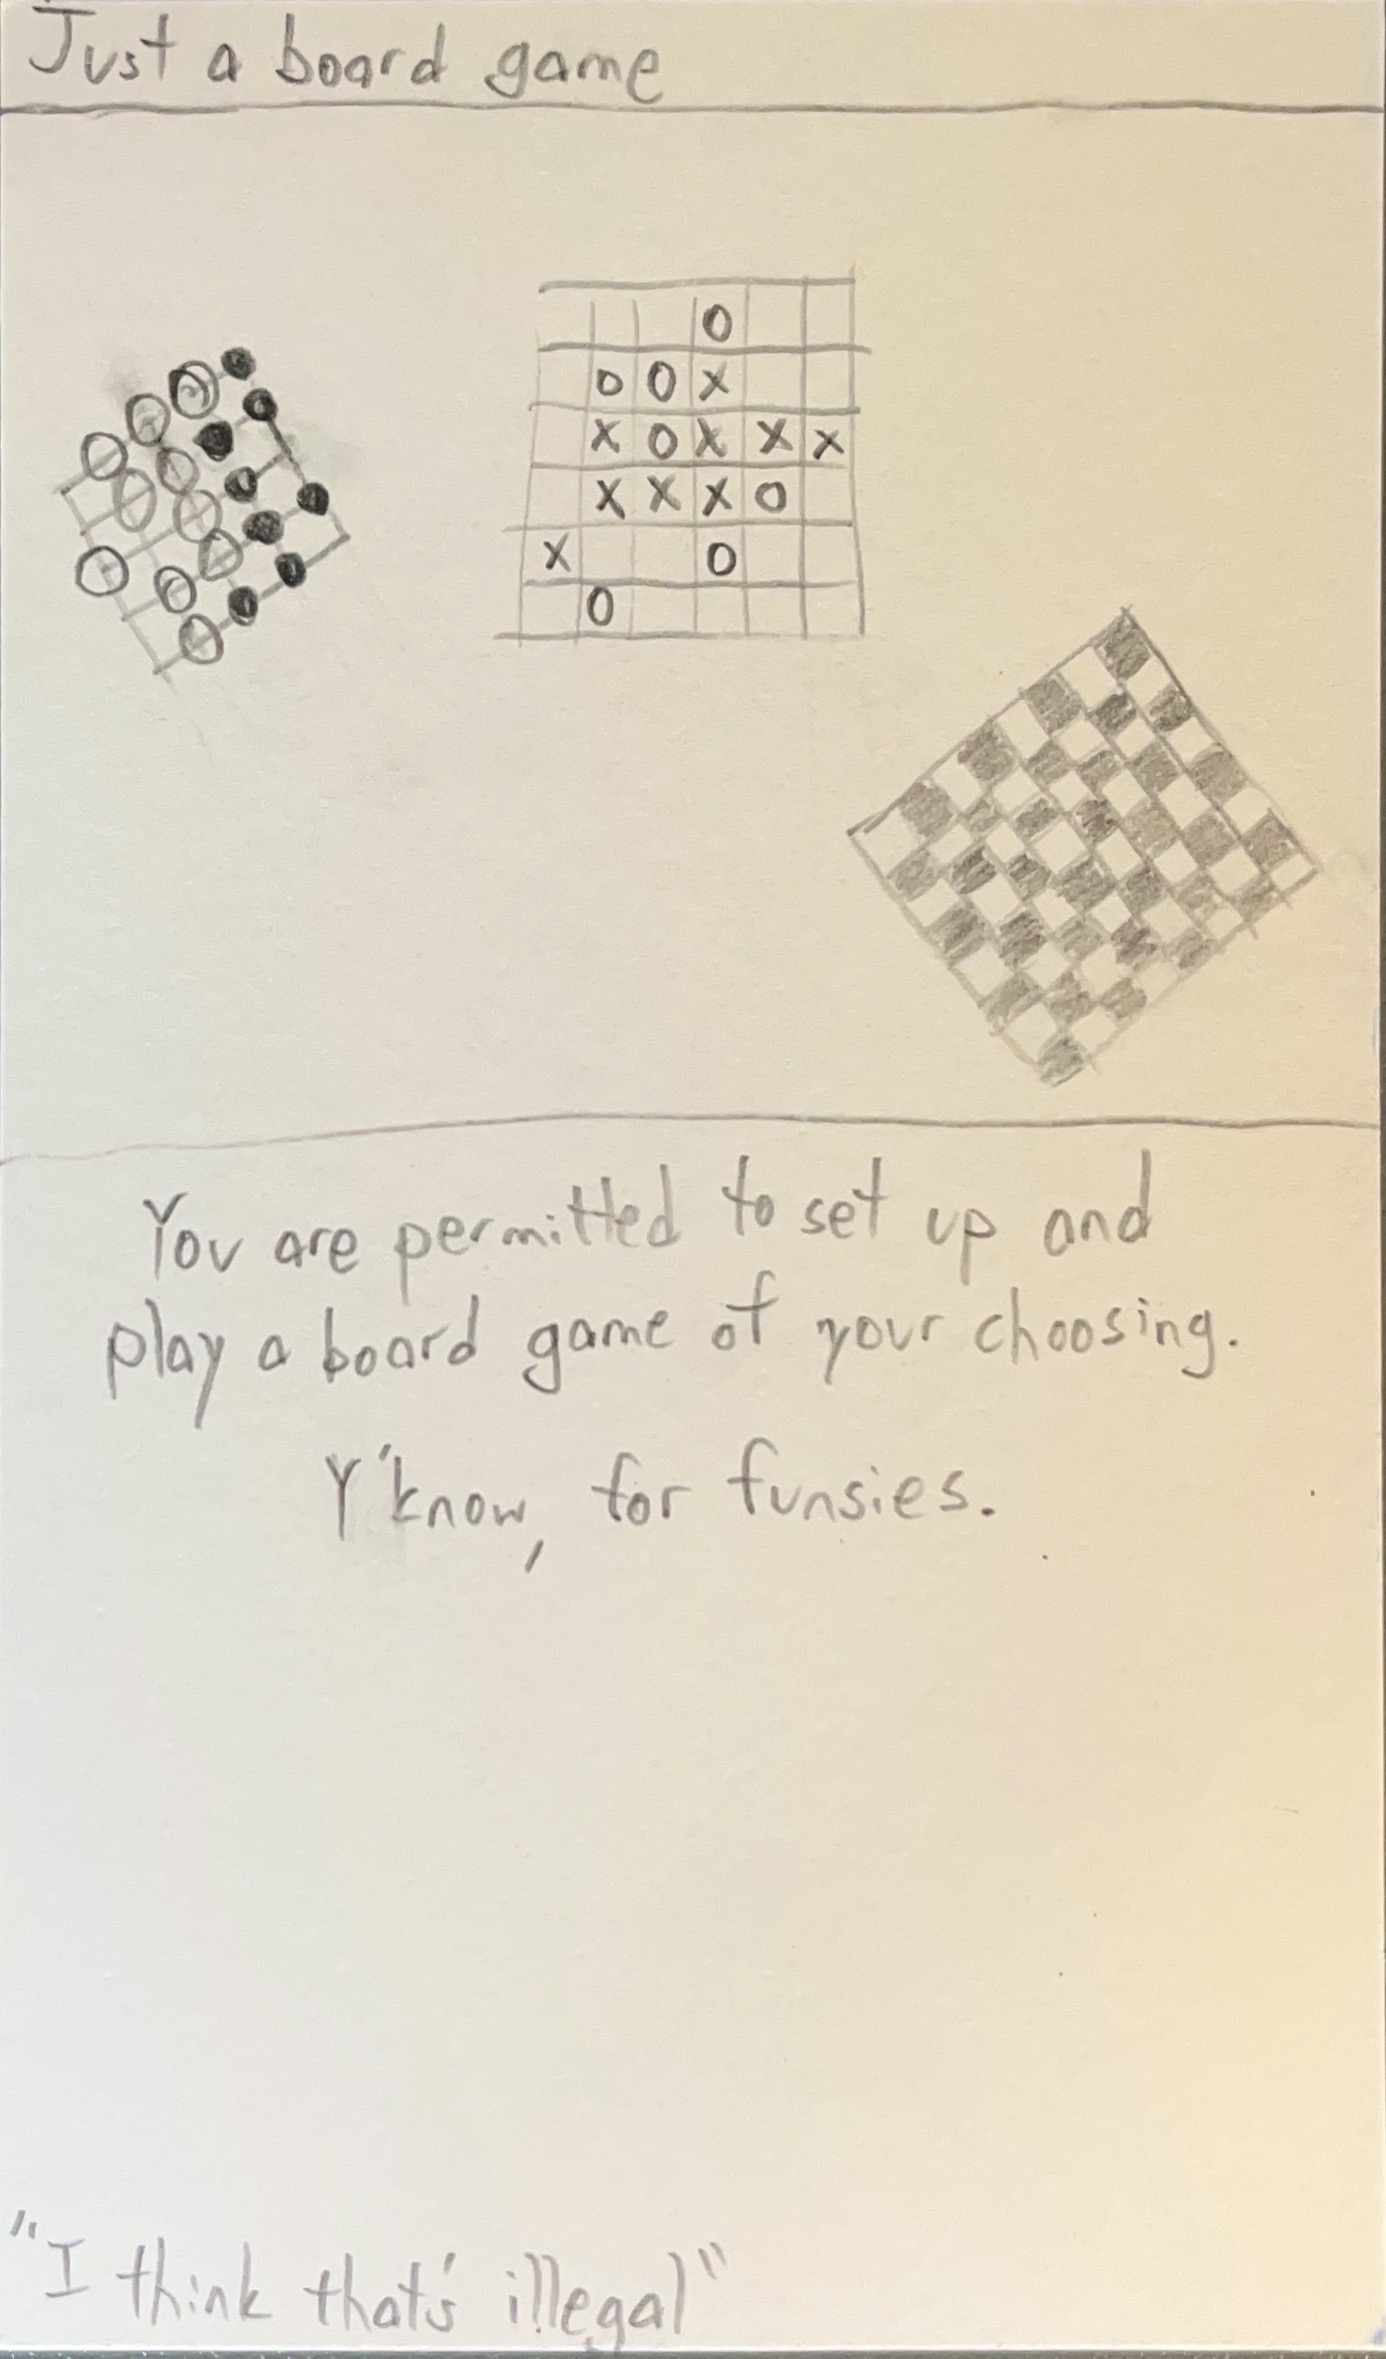 Just a board game
O
O O X
X O X X X
X X X O
X O
O
You are permitted to set up and
play a board game of your choosing.
Y'know, for funsies.
"I think that's illegal"